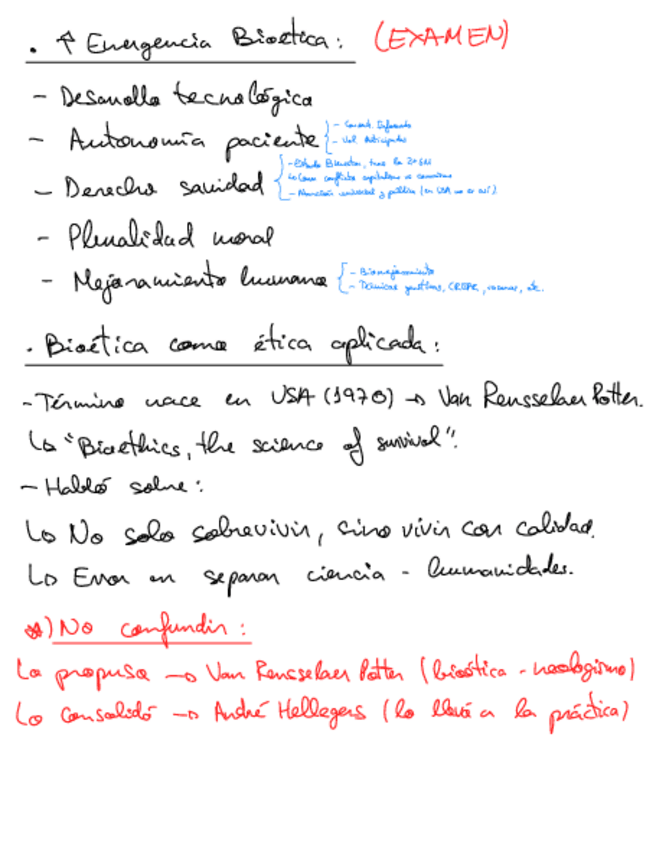 . ↑ Emergencia Bioética: (EXAMEN)
- Desarrollo tecnológica
- Autonomía paciente { - Consent. Informado
- Vol. Anticipadas
- Derecho sanidad { - Estado Bienestar, tras la 2ª GM
↳ Gran conflicto capitalismo vs comunismo
- Atención universal y pública (en USA no es así).
- Pluralidad moral
- Mejoramiento humano { - Biomejoramiento
- Técnicas genéticas, CRISPR, vacunas, etc.
. Bioética como ética aplicada:
- Término nace en USA (1970) → Van Rensselaer Potter.
↳ "Bioethics, the science of survival".
- Habló sobre:
↳ No solo sobrevivir, sino vivir con calidad.
↳ Error en separar ciencia - humanidades.
*) No confundir:
↳ propuso → Van Rensselaer Potter (bioética - neologismo)
↳ Consolidó → André Hellegers (lo llevó a la práctica)